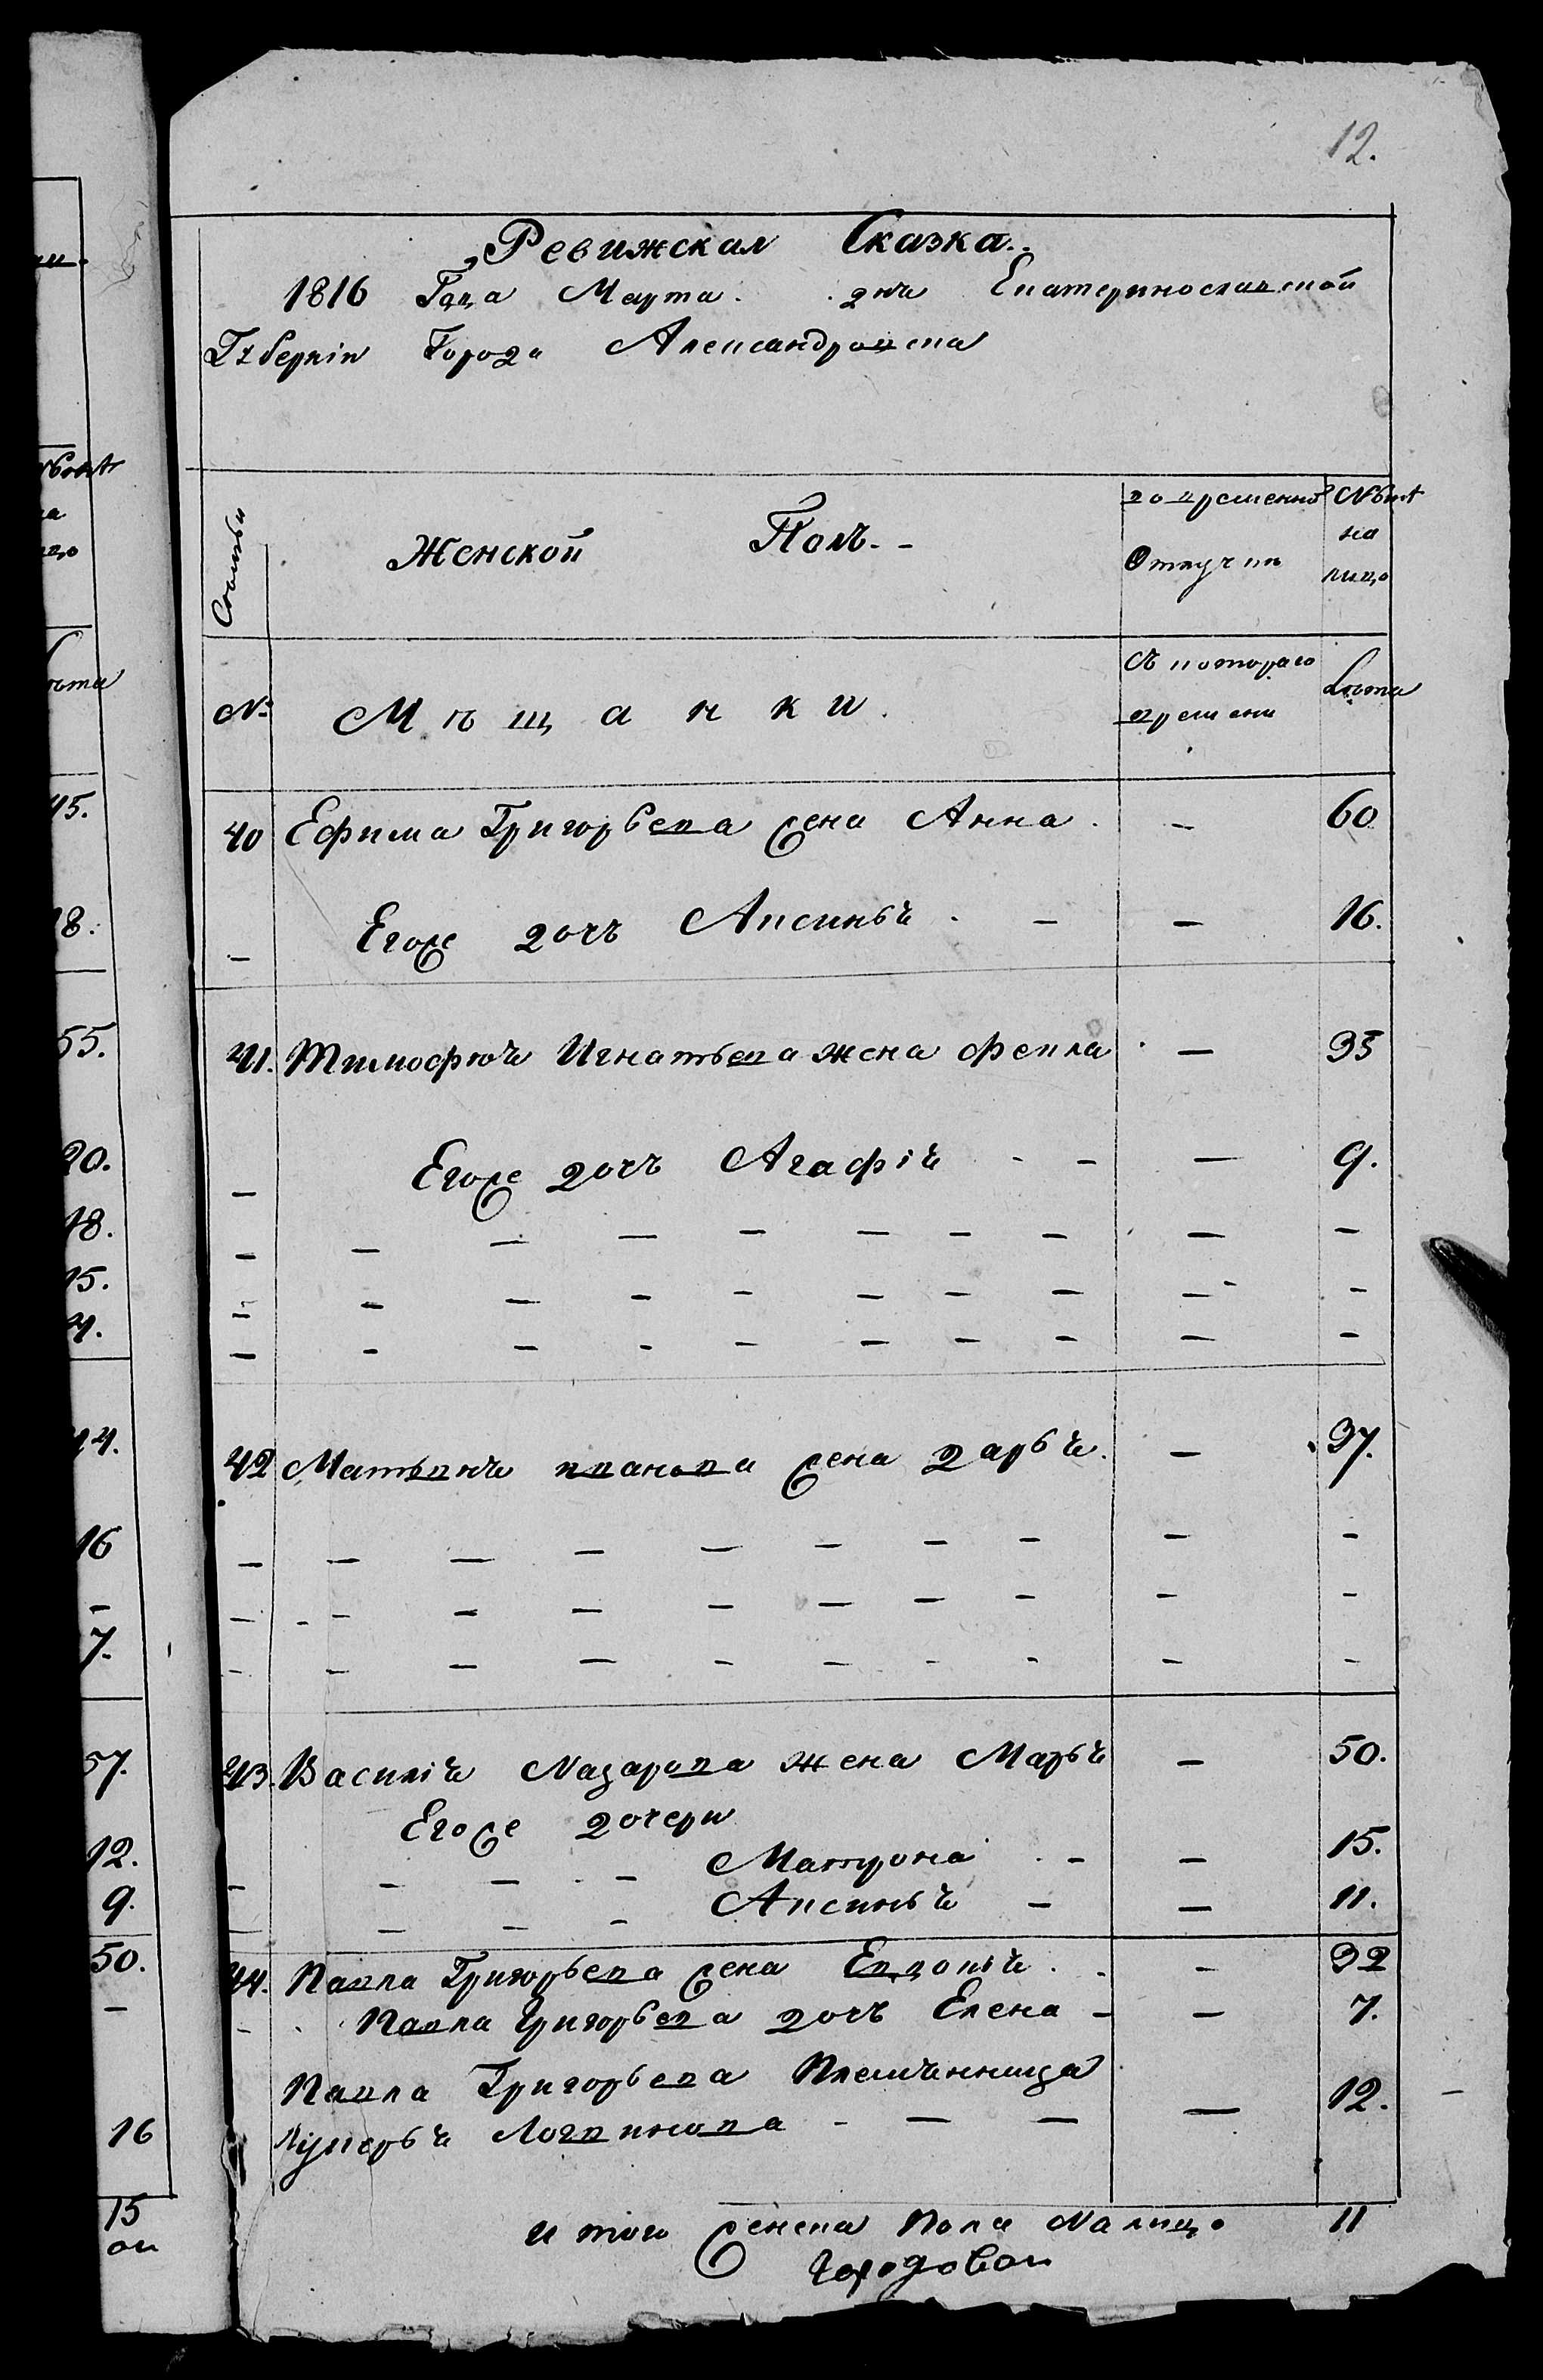 12.
Ревижская Сказка.
1816 Года Марта. дня Екатеринославской
Губернiи Города Александровска
Семьи
Женской Полъ.
во временной Отлучки
Нынѣ на лицо
№
Мѣщанки.
съ котораго времени
Лѣта
40 Ефима Григорьева жена Анна. — 60
— Егоже дочь Аксинья. — — 16.
41. Тимофѣя Игнатьева жена Фекла — 35
— Егоже дочь Агафiя - - — 9.
— — — — — — — — — —
— — — — — — — — — —
— — — — — — — — — —
42 Матвѣя Иванова жена Дарья. — 37.
— — — — — — — — — —
— - — — — — — — — — —
— — — — — — — — — —
43. Василiя Назарова жена Марья — 50.
Егоже дочери
— — — - — Матрона - — 15.
— — — — Аксинья — — 11.
44. Павла Григорьева жена Евдокiя. — 32
- Павла Григорьева дочь Елена — — 7.
Павла Григорьева Племянница
Лукерья Логвинова - — — — 12.
итого женска Пола На лицо 11
Городовои
45.
18.
55.
20.
18.
15.
4.
44.
16
—
7.
57.
12.
9.
50.
—
16
15
ои